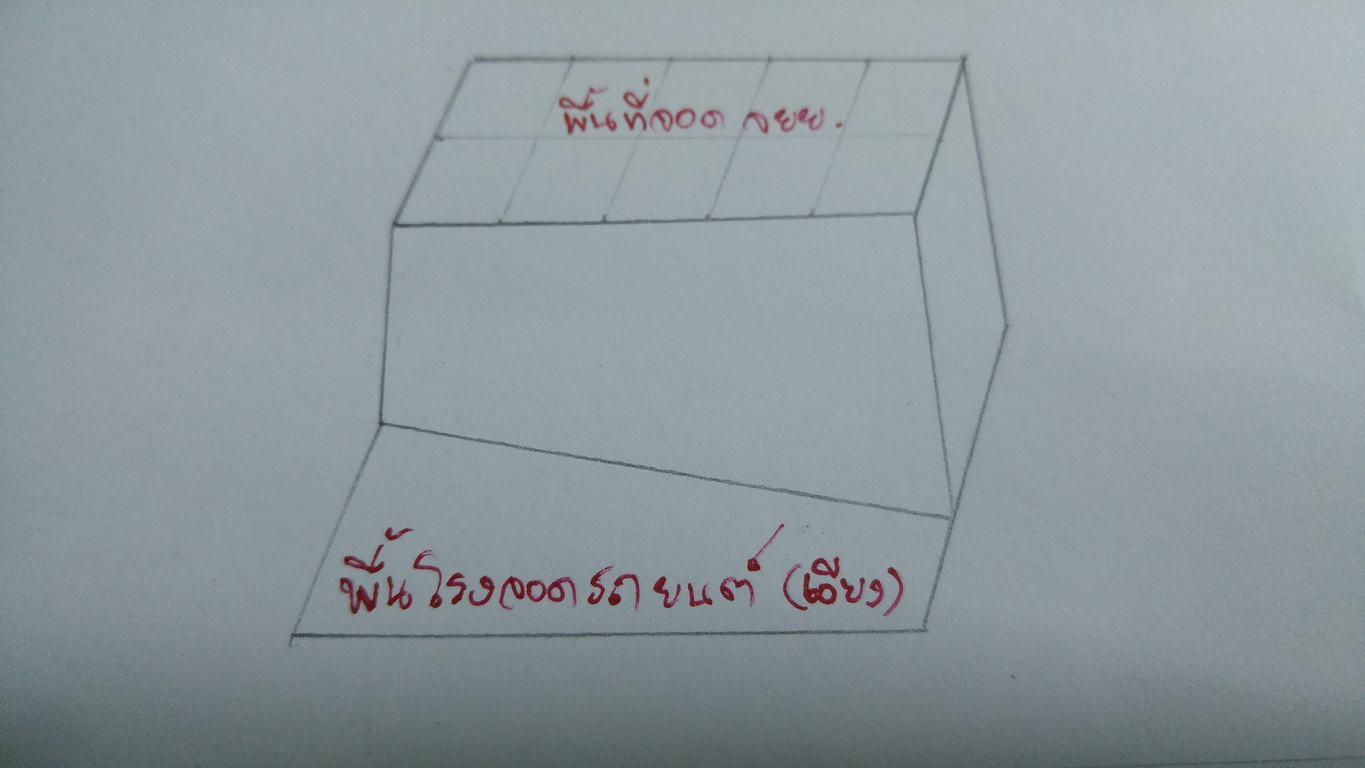 พื้นที่จอด จยย.
พื้นโรงจอดรถยนต์ (เอียง)